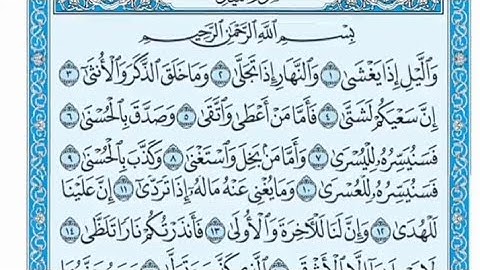 بِسْمِ اللَّهِ الرَّحْمَٰنِ الرَّحِيمِ
وَاللَّيْلِ إِذَا يَغْشَىٰ ١ وَالنَّهَارِ إِذَا تَجَلَّىٰ ٢ وَمَا خَلَقَ الذَّكَرَ وَالْأُنثَىٰ ٣
إِنَّ سَعْيَكُمْ لَشَتَّىٰ ٤ فَأَمَّا مَنْ أَعْطَىٰ وَاتَّقَىٰ ٥ وَصَدَّقَ بِالْحُسْنَىٰ ٦
فَسَنُيَسِّرُهُ لِلْيُسْرَىٰ ٧ وَأَمَّا مَنْ بَخِلَ وَاسْتَغْنَىٰ ٨ وَكَذَّبَ بِالْحُسْنَىٰ ٩
فَسَنُيَسِّرُهُ لِلْعُسْرَىٰ ١٠ وَمَا يُغْنِي عَنْهُ مَالُهُ إِذَا تَرَدَّىٰ ١١ إِنَّ عَلَيْنَا
لَلْهُدَىٰ ١٢ وَإِنَّ لَنَا لَلْآخِرَةَ وَالْأُولَىٰ ١٣ فَأَنذَرْتُكُمْ نَارًا تَلَظَّىٰ ١٤